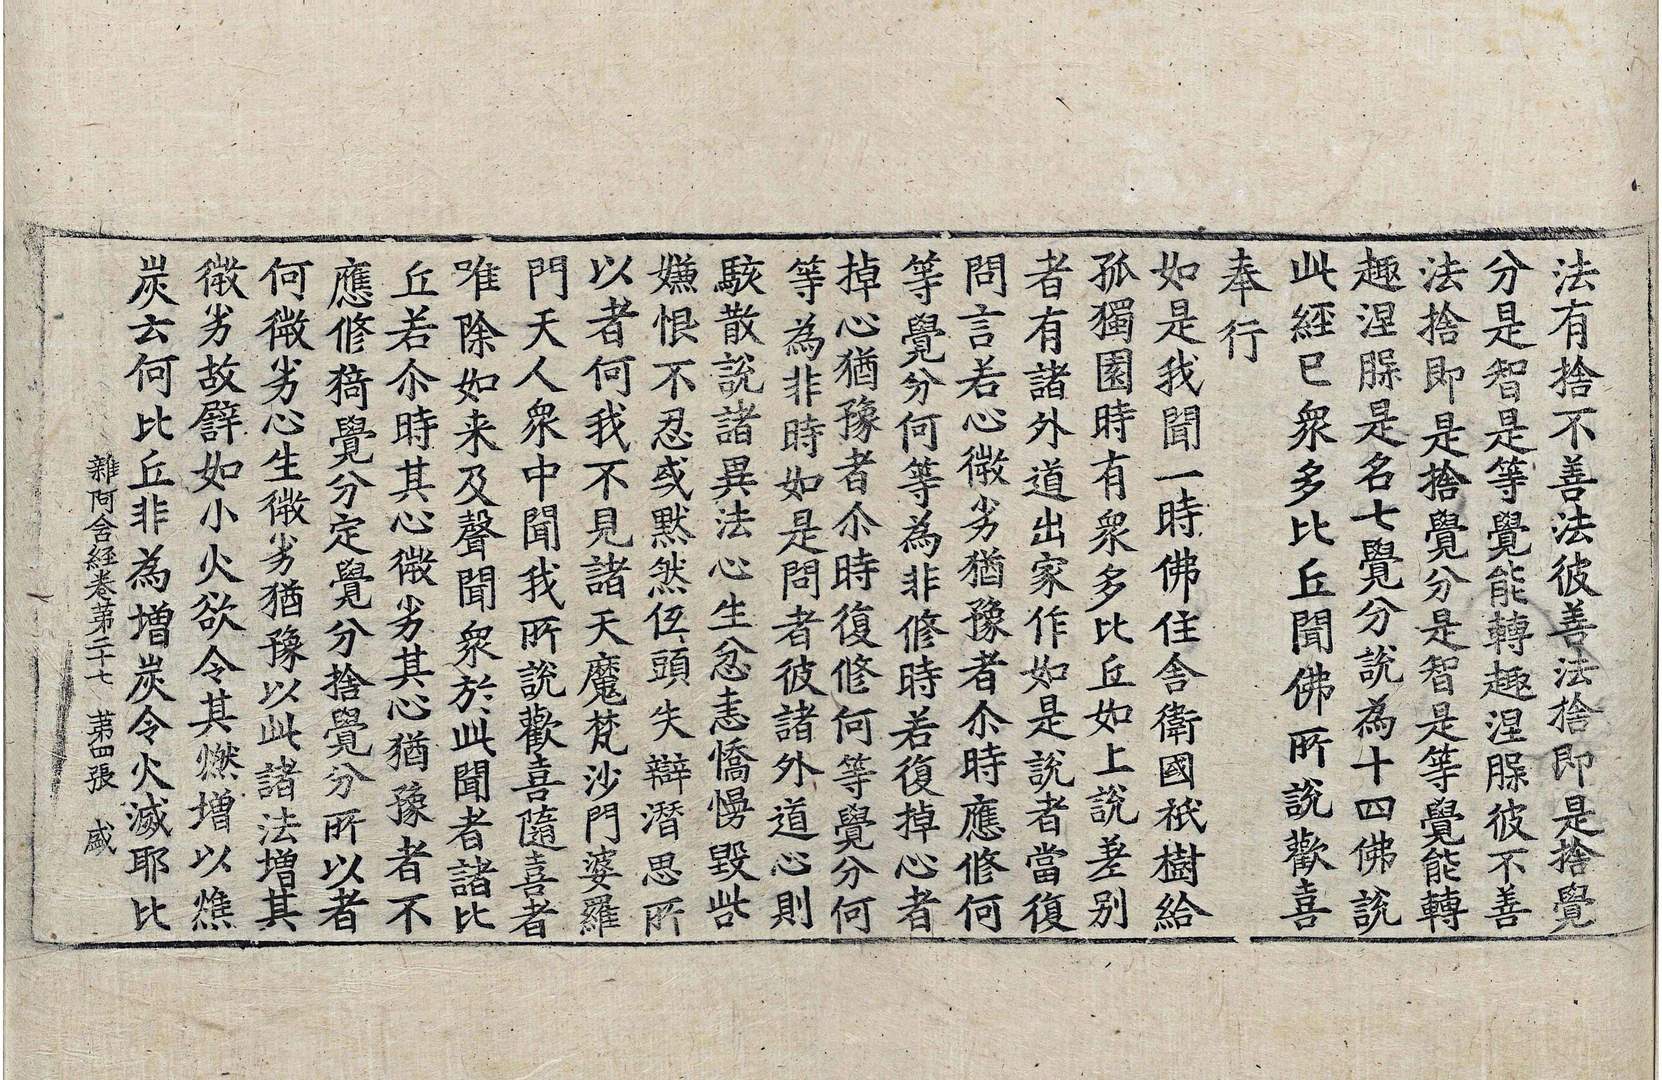 法有捨不善法彼善法捨即是捨覺
分是智是等覺能轉趣涅槃彼不善
法捨即是捨覺分是智是等覺能轉
趣涅槃是名七覺分說為十四佛說
此經已衆多比丘聞佛所說歡喜
奉行
如是我聞一時佛住舍衛國祇樹給
孤獨園時有衆多比丘如上說差別
者有諸外道出家作如是說者當復
問言若心微劣猶豫者尒時應修何
等覺分何等為非修時若復掉心者
掉心猶豫者尒時復修何等覺分何
等為非時如是問者彼諸外道心則
駭散說諸異法心生忿恚憍慢毀呰
嫌恨不忍或默然低頭失辯潛思所
以者何我不見諸天魔梵沙門婆羅
門天人衆中聞我所說歡喜隨喜者
唯除如来及聲聞衆於此聞者諸比
丘若尒時其心微劣其心猶豫者不
應修猗覺分定覺分捨覺分所以者
何微劣心生微劣猶豫以此諸法增其
微劣故譬如小火欲令其燃增以燋
炭云何比丘非為增炭令火滅耶比
雜阿含經卷第二十七 第四張 盛